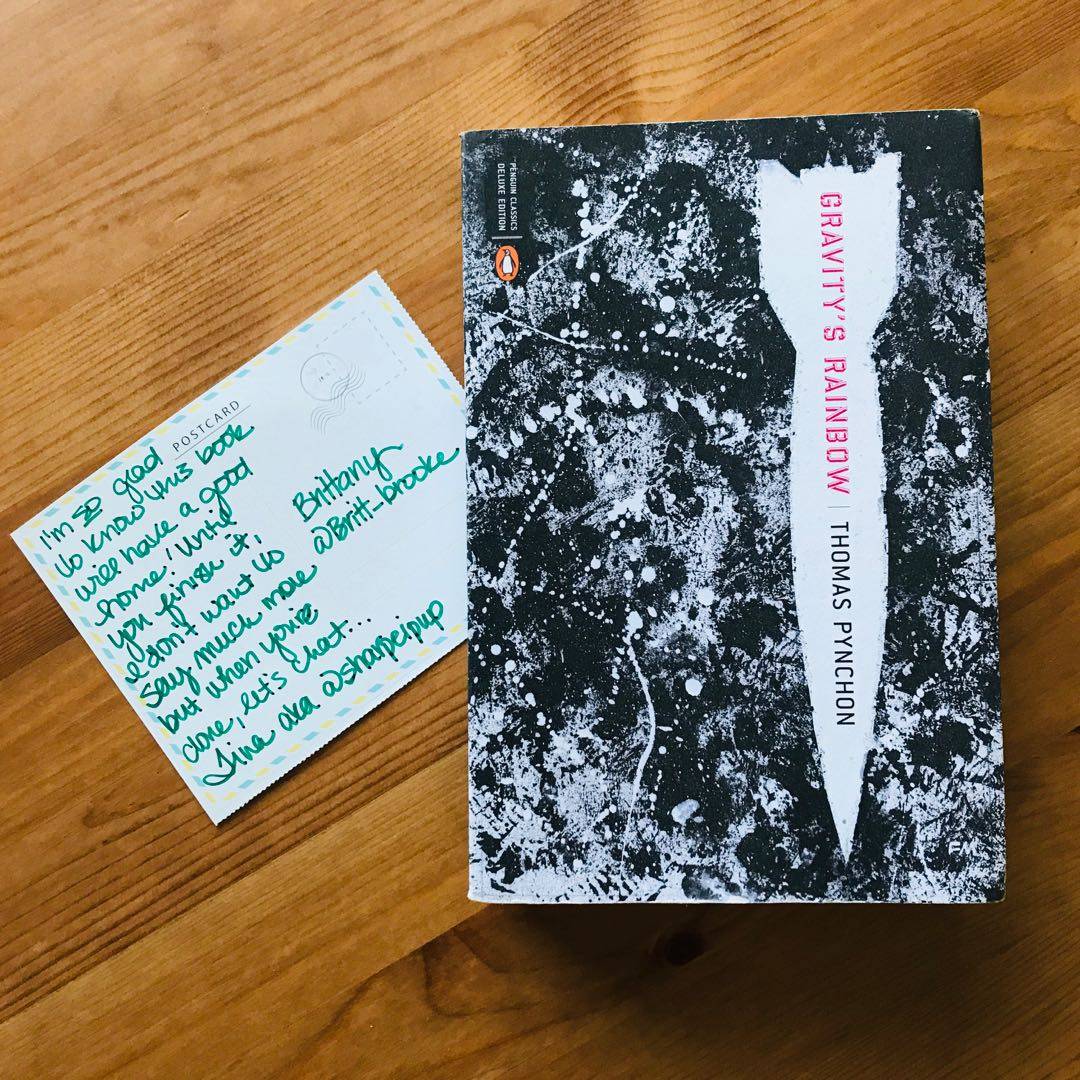 POSTCARD
I'm so glad
to know this book
will have a good
home! Until
you finish it,
I don't want to
say much more
but when you're
done, let's chat...
Tina aka @sharpeipup
Brittany
@Britt_brooke
PENGUIN CLASSICS
DELUXE EDITION
GRAVITY'S RAINBOW | THOMAS PYNCHON